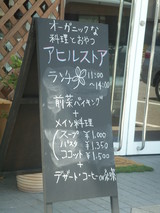 オーガニックな
料理とおやつ
アヒルストア
ランチ 11:00
〜14:00
前菜バイキング
+
メイン料理
スープ ¥1,000
パスタ ¥1,350
ココット ¥1,500
+
デザート・コーヒーor